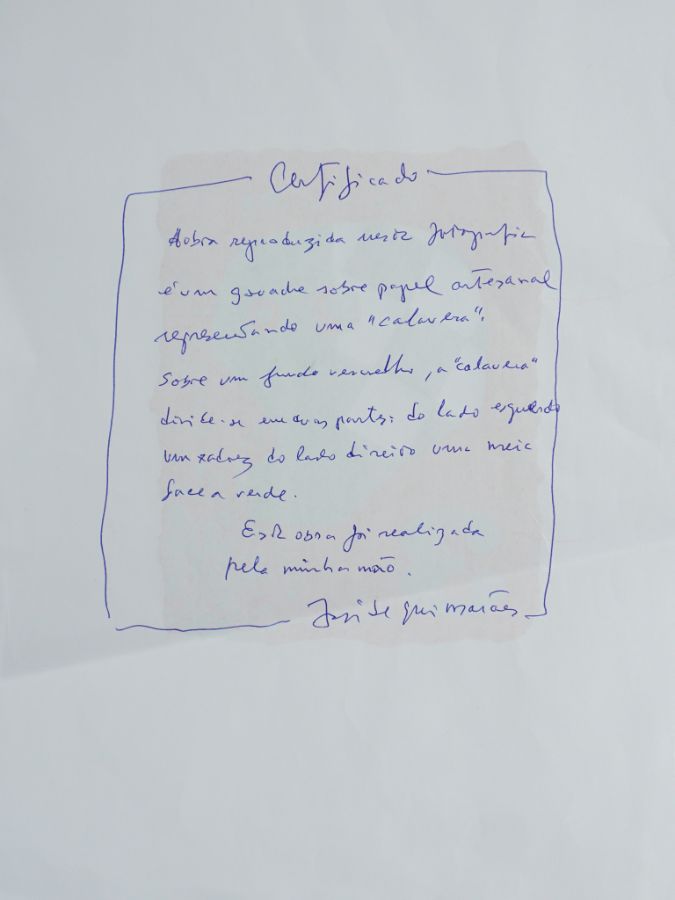 Certificado
A obra reproduzida nesta fotografia
é um gouache sobre papel artesanal
representando uma "calavera".
Sobre um fundo vermelho, a "calavera"
divide-se em duas partes: do lado esquerdo
um xadrez do lado direito uma meia
face a verde.
Esta obra foi realizada
pela minha mão.
José de Guimarães